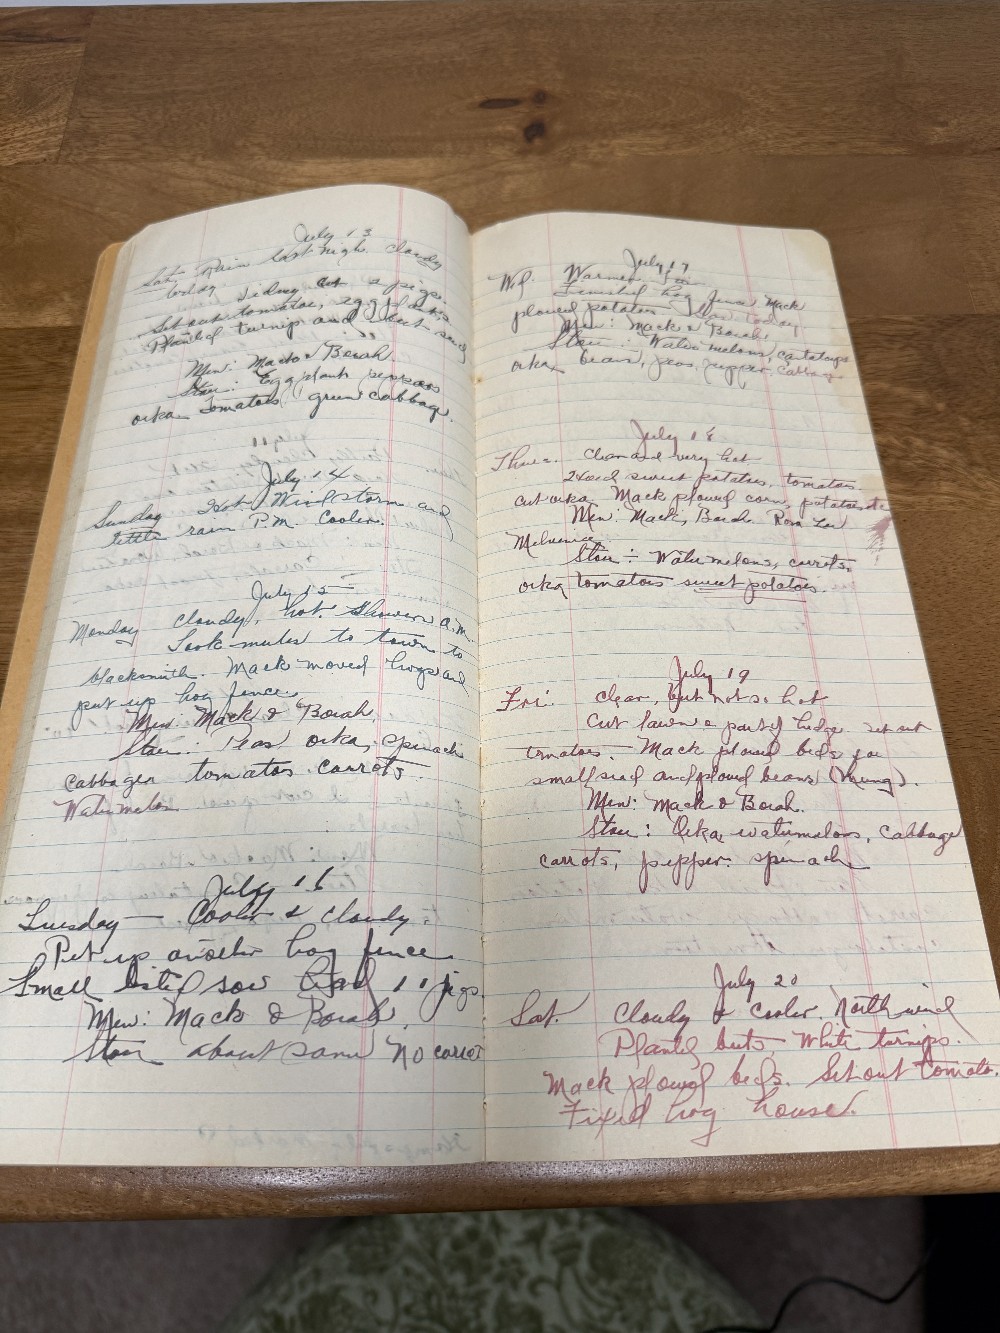 July 13
Sat Rain last nigh. cloudy
today. cut pigs.
Set out tomatoe, eggplants,
Planted turnip and seed
Men: Mack & Borah.
Store: Eggplant
orka tomatoes green cabbage.
July 14
Sunday Hot. Wind storm and
little rain P.M. Cooler.
July 15
Monday cloudy, hot. Showers a.m.
Took mules to town to
blacksmith. Mack moved hogs and
put up hog fence.
Men: Mack & Borah.
Store: Peas orka, spinach
cabbages tomatoes carrots.
Watermelon
July 16
Tuesday — Cooler & cloudy.
Put up another hog fence
Small sow had 11 pigs.
Men: Mack & Borah.
Store about same No carrot
July 17
Wed. Warmer,
Finished hog fence Mack
plowed potatoes. today
Men: Mack & Borah.
Store: Water melons, cantalope
orka, beans, peas, pepper cabbage
July 18
Thurs. Clear and very hot
sweet potatoes, tomatoes
cut orka. Mack plowed corn, potatoes etc
Men: Mack, Borah Rosa Lee
Store: Water melons, carrots,
orka, tomatoes sweet potatoes.
July 19
Fri. clear, but not so hot
cut lawn & part of hedge, set out
tomatoes — Mack plowed beds for
small seed and plowed beans (Mung).
Men: Mack & Borah.
Store: Orka, watermelons, cabbage
carrots, pepper spinach
July 20
Sat. Cloudy & cooler, North wind
Planted beets, White turnips.
Mack plowed beds. Set out tomato.
Fixed hog house.